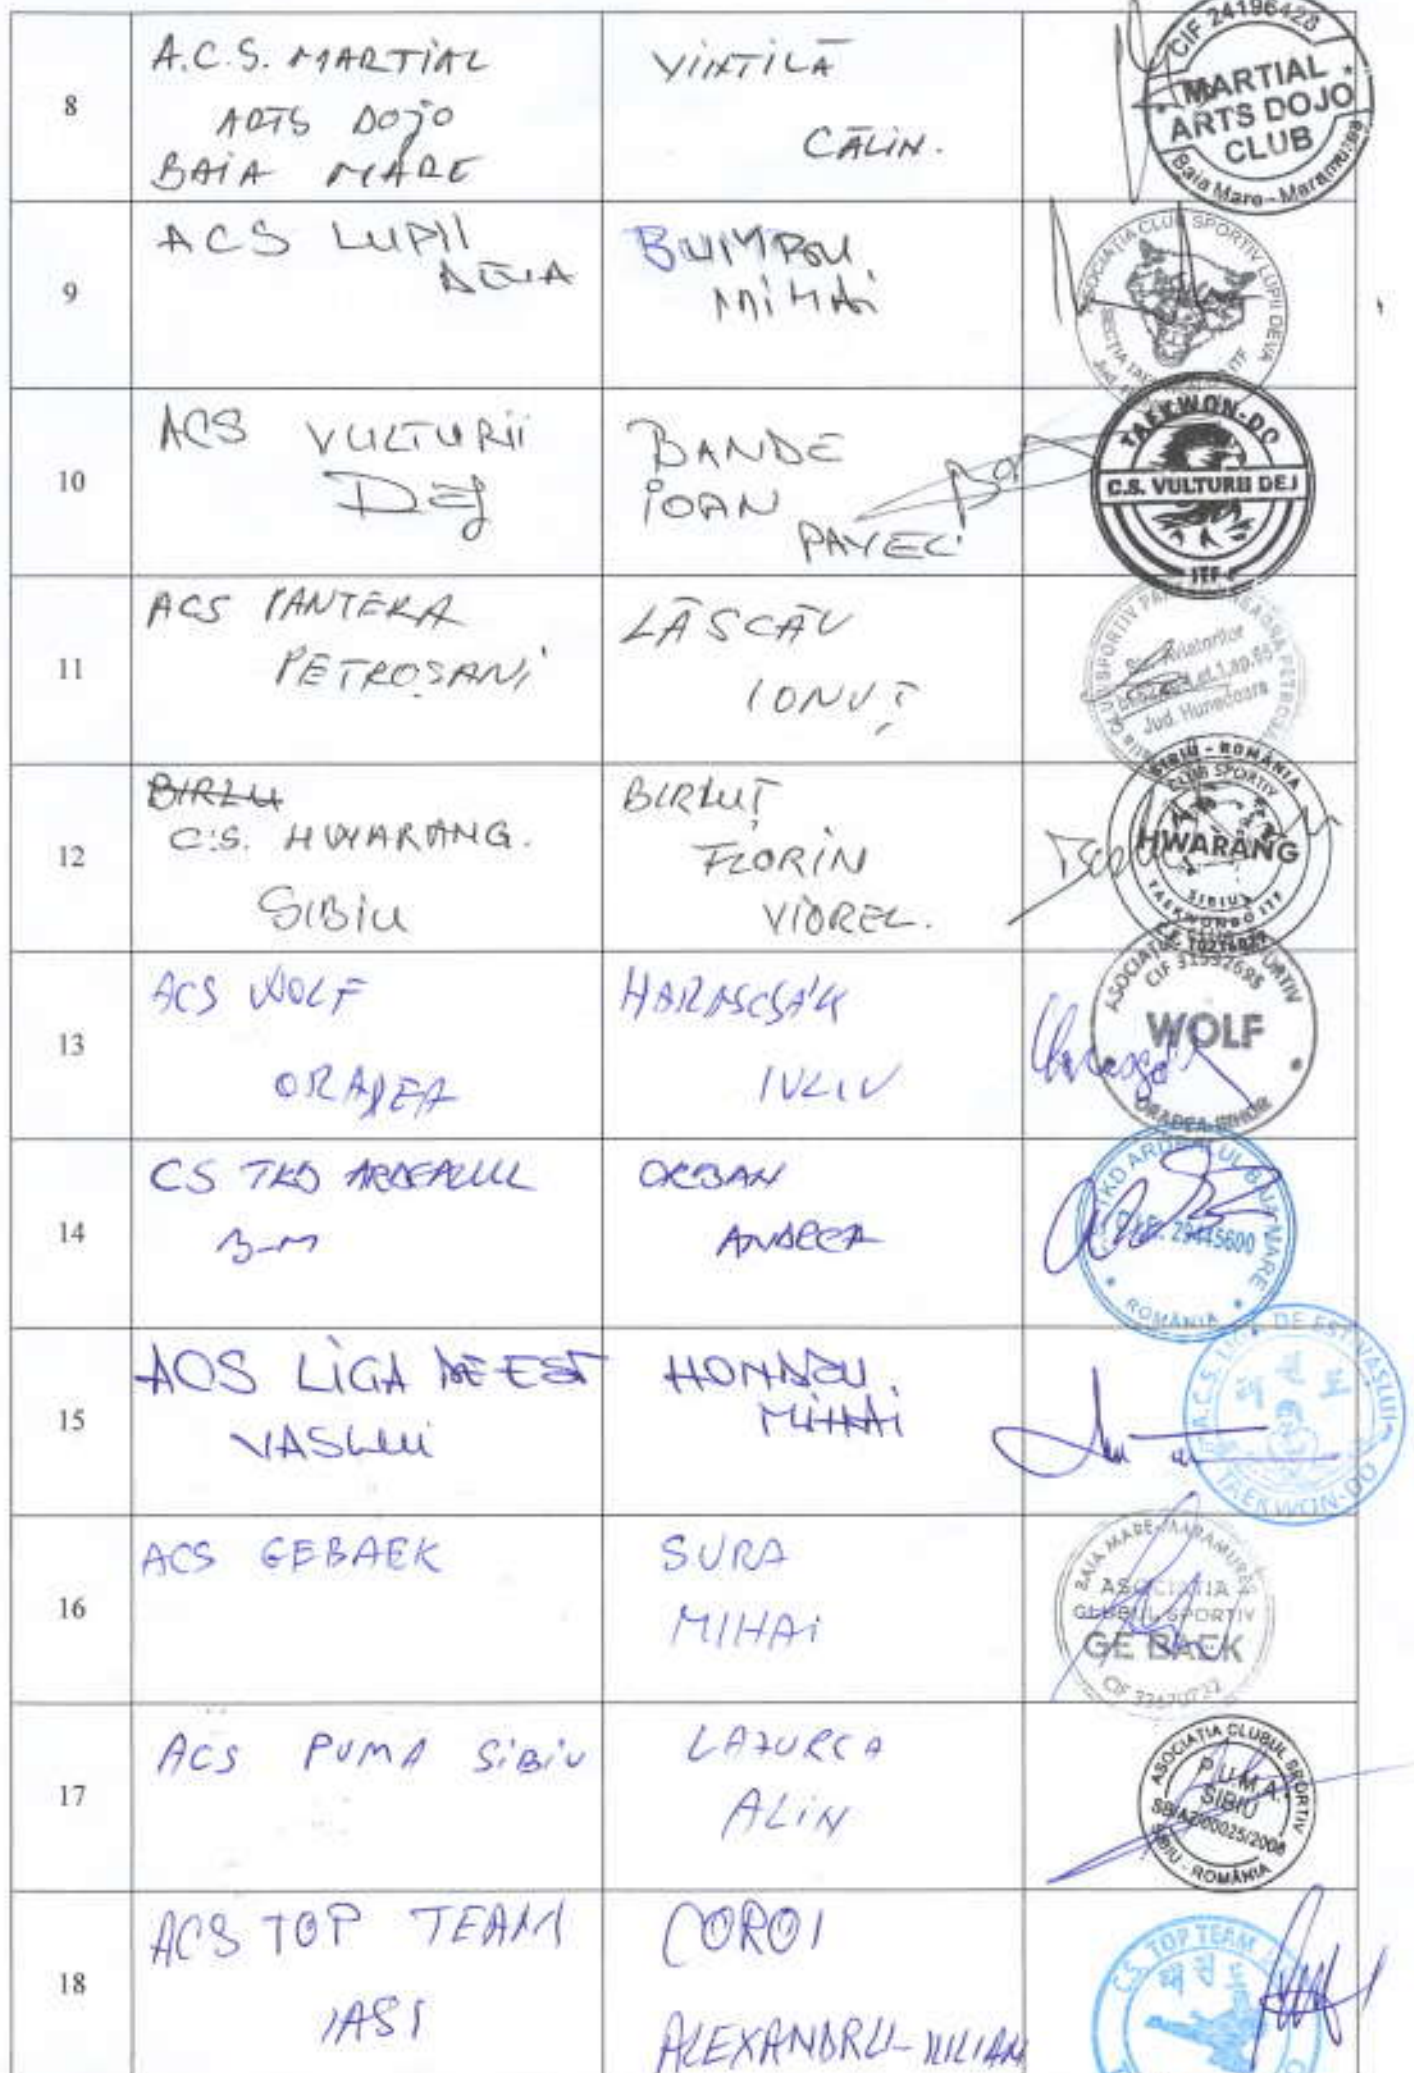 8
A.C.S. MARTIAL
ARTS DOJO
BAIA MARE
VINTILĂ
CĂLIN.
CIF 24196428
MARTIAL
ARTS DOJO
CLUB
Baia Mare - Maramureș
9
ACS LUPII
DEVA
MIHAI
ASOCIATIA CLUB SPORTIV LUPII DEVA
10
ACS VULTURII
DEJ
BANDE
IOAN
PAVEL
TAEKWON-DO
C.S. VULTURII DEJ
ITF
11
ACS PANTERA
PETROȘANI
LĂSCĂU
IONUȚ
Aviatorilor
Jud. Hunedoara
12
BIRLU
C.S. HWARANG.
SIBIU
BIRLUȚ
FLORIN
VIOREL.
SIBIU - ROMÂNIA
CLUB SPORTIV
HWARANG
SIBIU
TAEKWONDO ITF
13
ACS WOLF
ORADEA
HARASCSÁK
IULIU
CIF 31592695
WOLF
ORADEA-BIHOR
14
CS TKD ARDEALUL
B-M
ORBAN
ANDREEA
C.I.F. 29445600
ROMÂNIA
15
ACS LIGA DE EST
VASLUI
MIHAI
A.C.S. LIGA DE EST VASLUI
태권도
TAEKWON-DO
16
ACS GEBAEK
SURA
MIHAI
BAIA MARE-MARAMUREȘ
ASOCIATIA
CLUBUL SPORTIV
GE BAEK
17
ACS PUMA SIBIU
LAZURCA
ALIN
ASOCIATIA CLUBUL SPORTIV
P.U.M.A.
SIBIU
SIBIU - ROMÂNIA
18
ACS TOP TEAM
IASI
COROI
ALEXANDRU-IULIAN
C.S. TOP TEAM
태권도